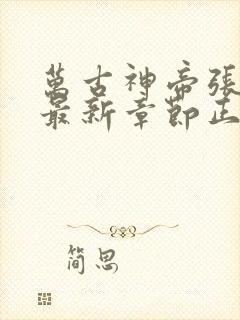 萬古神帝張
最新章節正
简思